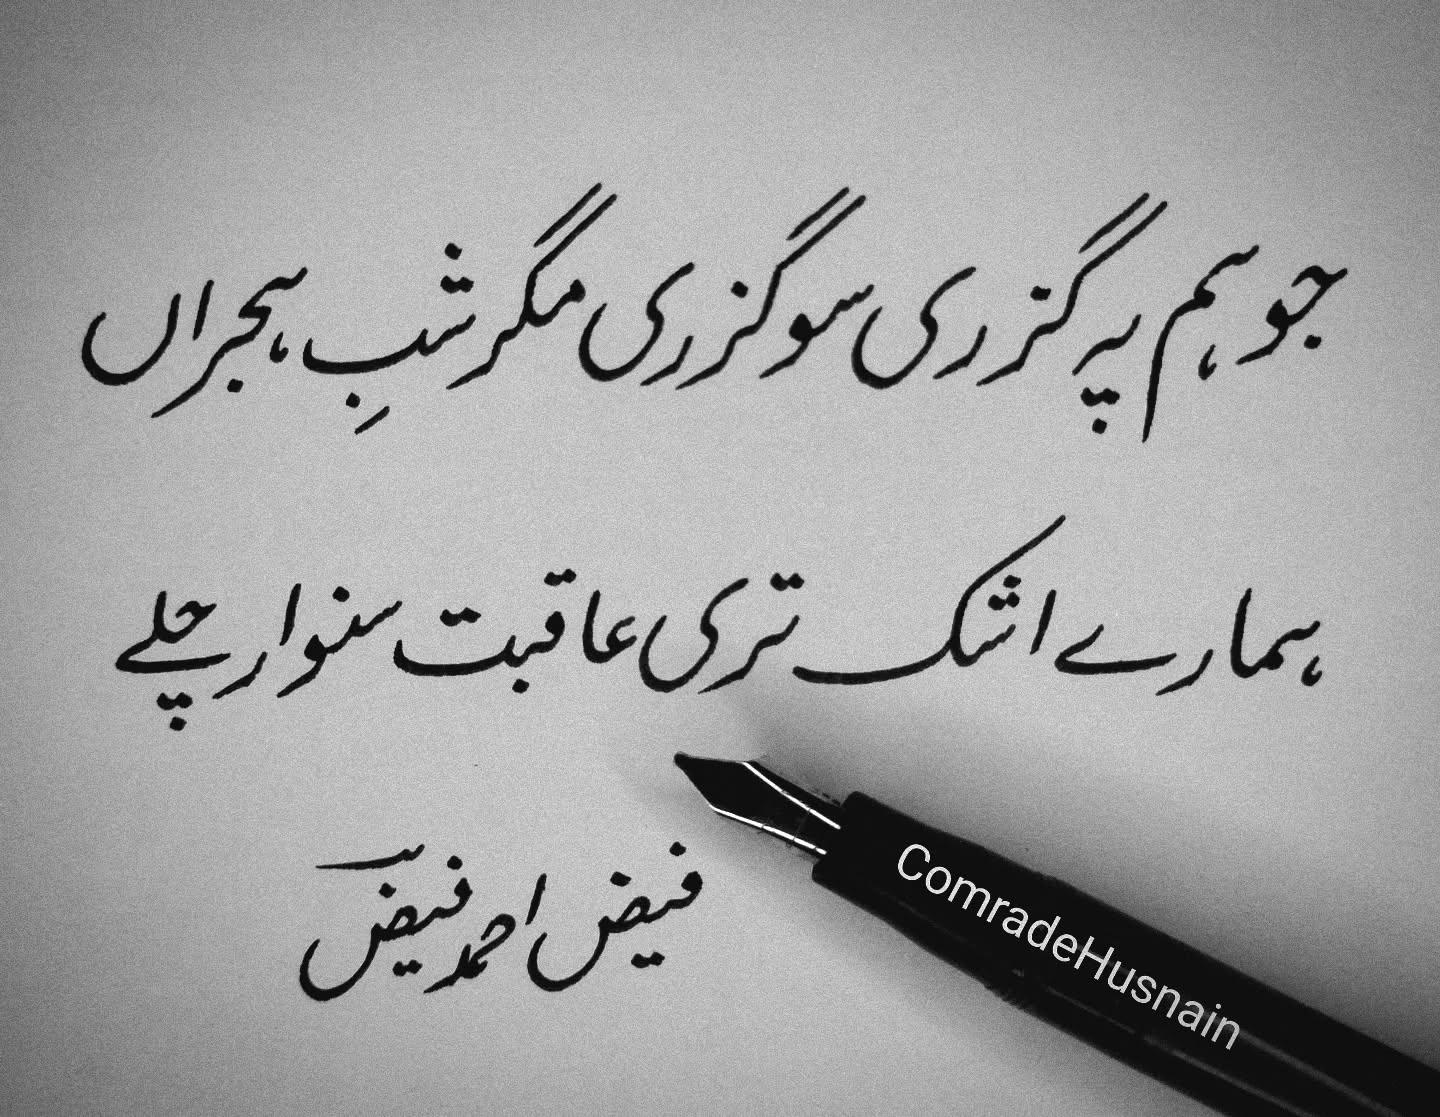 جو ہم پہ گزری سو گزری مگر شبِ ہجراں
ہمارے اشک تری عاقبت سنوار چلے
فیض احمد فیض
ComradeHusnain